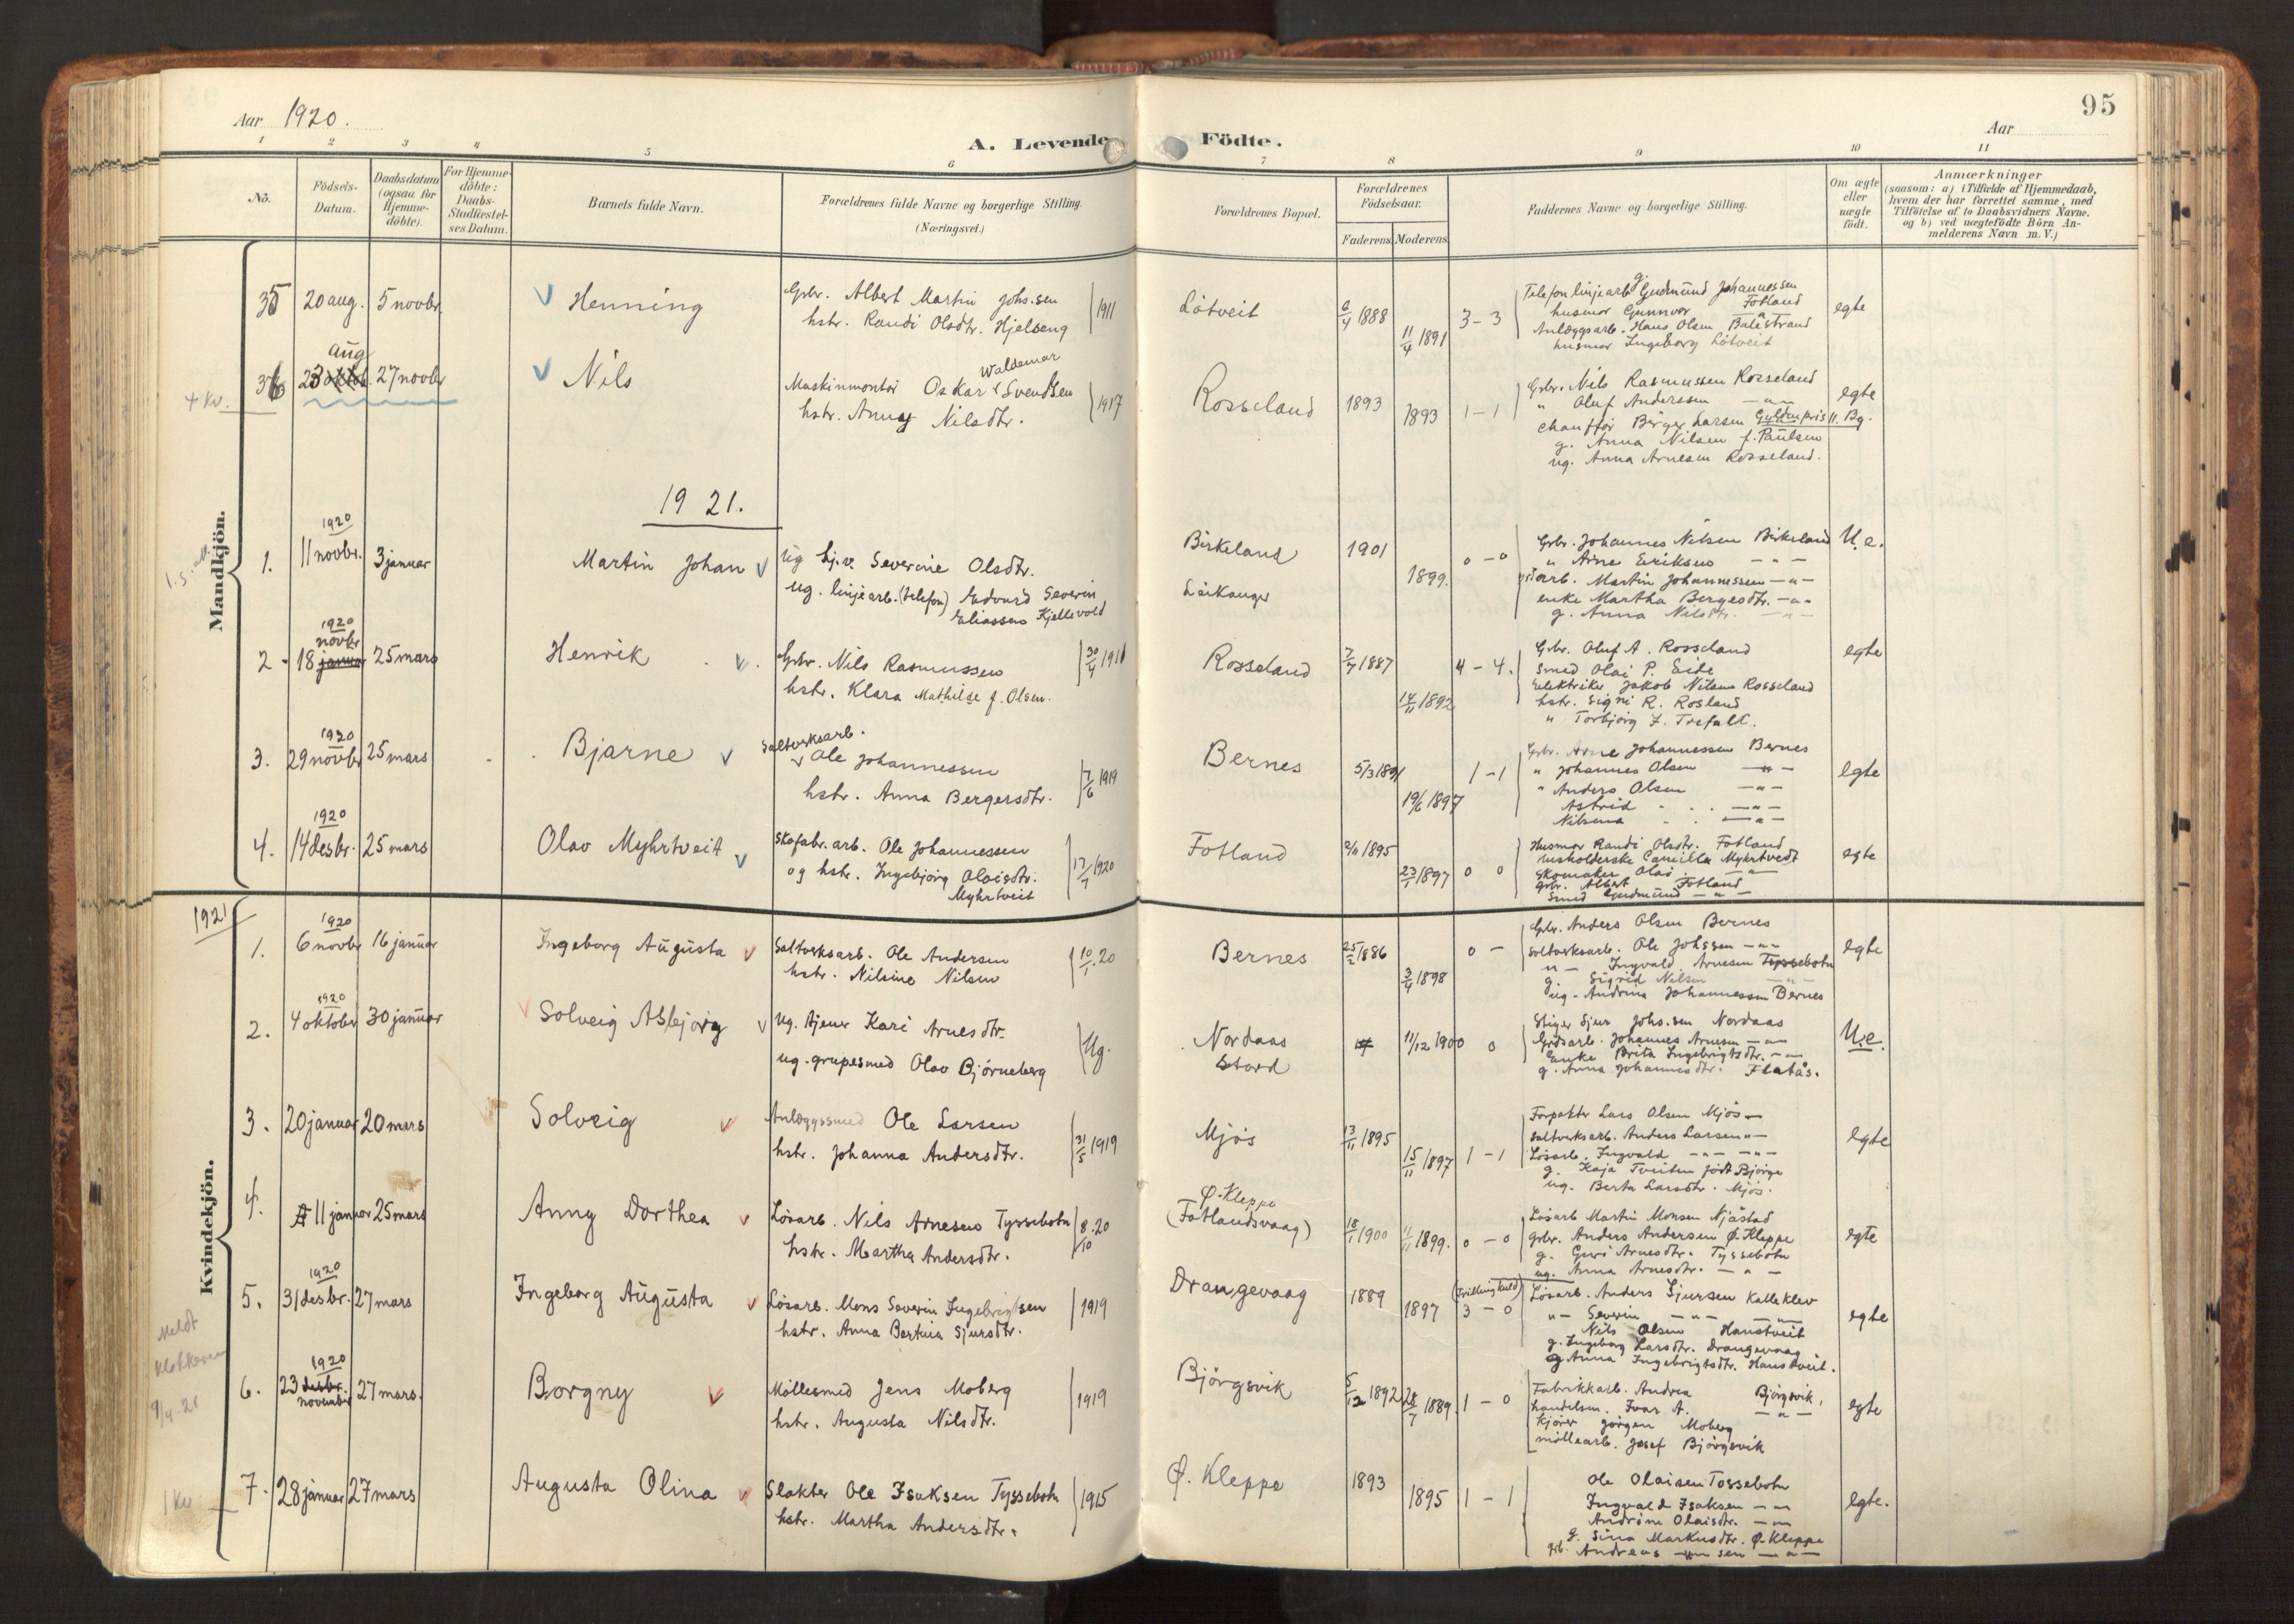 95
Aar 1920.
Aar
A. Levende Födte.
1 2 3 4 5 6 7 8 9 10 11
No.
Födsels-
Datum.
Daabsdatum
(ogsaa for
Hjemme-
döbte).
For Hjemme-
döbte:
Daabs-
Stadfæstel-
ses Datum.
Barnets fulde Navn.
Forældrenes fulde Navne og borgerlige Stilling.
(Næringsvei.)
Forældrenes Bopæl.
Forældrenes
Födselsaar.
Faderens. Moderens.
Faddernes Navne og borgerlige Stilling.
Om ægte
eller
uægte
födt.
Anmærkninger
(saasom: a) i Tilfælde af Hjemmedaab,
hvem der har forrettet samme, med
Tilföielse af to Daabsvidners Navne.
og b) ved uægtefödte Börn An-
melderens Navn m. V.)
Mandkjön.
35 20 aug. 5 novbr Henning
Grbr. Albert Martin Johs.sen
hstr. Randi Olsdtr. Hjelseng
1911
Lötveit
1888
11/4 1891
3-3
Telefonlinjearb. Gudmund Johannessen
husmor Gunnvor Fotland
Anlægsarb. Hans Olsen Balestrand
husmor Ingeborg Lötveit
egte
4 kv.
36 23 aug 27 novbr Nils
Maskinmontør Oskar Waldemar Svendsen
hstr. Anny Nilsdtr.
1917
Rosseland
1893
1893
1-1
Grbr. Nils Rasmussen Rosseland
" Oluf Anderssen -"-
chauffør Birger Larsen Gyldenpris 11. Bg.
g. Anna Nilsen f. Paulsen
ug. Anna Arnesen Rosseland.
egte
1921.
1920
1. 11 novbr. 3 januar Martin Johan
Ug hj.v. Severine Olsdtr.
ug. linjearb. (telefon) Edvard Severin
Eliassen Kjellevold
Birkeland
Leikanger
1901
1899.
0-0
Grbr. Johannes Nilsen Birkeland
" Arne Eriksen -"-
arb. Martin Johannessen -"-
enke Martha Bergesdtr. -"-
g. Anna Nilsdtr. -"-
U.e.
1920
novbr
2 - 18 januar 25 mars Henrik
Grbr. Nils Rasmussen
hstr. Klara Mathilde f. Olsen.
30/4 1911
Rosseland
1887
14/11 1892
4-4.
Grbr. Oluf A. Rosseland
Smed Olai P. Eide
Elektriker Jakob Nilsen Rosseland
hstr. Signi R. Rosland
" Torbjörg J. Trefall.
egte
1920
3. 29 novbr 25 mars Bjarne
Saltverksarb.
Ole Johannessen
hstr. Anna Bergersdtr.
7/6 1919
Bernes
5/3 1891
19/6 1897
1-1
Grbr. Arne Johannessen Bernes
" Johannes Olsen -"-
" Anders Olsen -"-
Astrid -"-
Nilsena -"-
egte
1920
4. 14 desbr. 25 mars Olav Myhrtveit
Skofabr.arb. Ole Johannessen
og hstr. Ingebjörg Olaisdtr.
Myhrtveit
1920
Fotland
2/11 1895
23/1 1897
0 0
Husmor Randi Olsdtr. Fotland
husholderske Camilla Myhrtvedt
Skomaker Olai -"-
Grbr. Albert Fotland
Smed Gudmund -"-
egte
1921
Kvindekjön.
1920
1. 6 novbr 16 januar Ingeborg Augusta
Saltverksarb. Ole Andersen
hstr. Nilsine Nilsen
10/1.20
Bernes
25/2 1886
3/4 1898
0 -
Grbr. Anders Olsen Bernes
Saltverksarb. Ole Johssen -"-
"- Ingvald Arnesen Tyssebotn
g. Sigrid Nilsen -"-
ug. Andrina Johannessen Bernes
egte
1920
2. 4 oktober 30 januar Solveig Asbjörg
Ug. tjener Kari Arnesdtr.
ug. grupesmed Olav Bjørneberg
Ug.
Nordaas
Stord
11/12 1900
0
Stiger Sjur Johs.sen Nordaas
Grdsarb. Johannes Arnesen -"-
Enke Brita Ingebrigtsdtr. -"-
g. Anna Johannesdtr. Flatås.
U.e.
3. 20 januar 20 mars Solveig
Anlæggssmed Ole Larsen
hstr. Johanna Andersdtr.
31/5 1919
Mjös
13/11 1895
15/11 1897
1-1
Forpakter Lars Olsen Mjös
Saltverksarb. Anders Larsen -"-
Lösarb. Ingvald -"- -"-
g. Kaja Tveiten født Bjørge
ug. Berta Larsdtr. Mjös.
egte
4. 11 januar 25 mars Anny Dorthea
Lösarb. Nils Arnesen Tyssebotn
hstr. Martha Andersdtr.
8/10.20
Ø. Kleppe
(Fotlandsvaag)
18/1 1900
11/11 1899.
0-0
Lösarb Martin Monsen Njåstad
Grbr. Anders Andersen Ø. Kleppe
g. Guri Arnesdtr. Tyssebotn
ug. Anna Arnesdtr. -"-
egte
1920
5. 31 desbr. 27 mars Ingeborg Augusta
Lösarb. Mons Severin Ingebrigtsen
hstr. Anna Bertina Sjursdtr.
1919
Drangevaag
1889
1897
(Trillingkuld)
3-0
Lösarb. Anders Sjursen Kalleklev
"- Severin -"- -"-
Nils Olsen Hanstveit
g. Ingeborg Larsdtr. Drangevaag
g. Anna Ingebrigtsdtr. Hanstveit.
egte
Meldt
klokkeren
9/4-21
1920
6. 23 desbr. 27 mars. Borgny
november
Möllesmed Jens Moberg
hstr. Augusta Nilsdtr.
1919
Björgsvik
5/12 1892
28/7 1889.
1-0
Fabrikkarb. Andrea Björgsvik,
handelsm. Ivar A. -"-
Kjører Jörgen Moberg
möllearb. Josef Björgsvik
egte
1 kv
7. 28 januar 27 mars Augusta Olina
Slakter Ole Isaksen Tyssebotn
hstr. Martha Andersdtr.
1915
Ø. Kleppe
1893
1895
1-1
Ole Olaisen Tossebotn
Ingvald Isaksen -"-
Andrine Olaisdtr. -"-
g. Sina Markusdtr. Ø. Kleppe
grb. Andreas -"- sen -"-
egte.